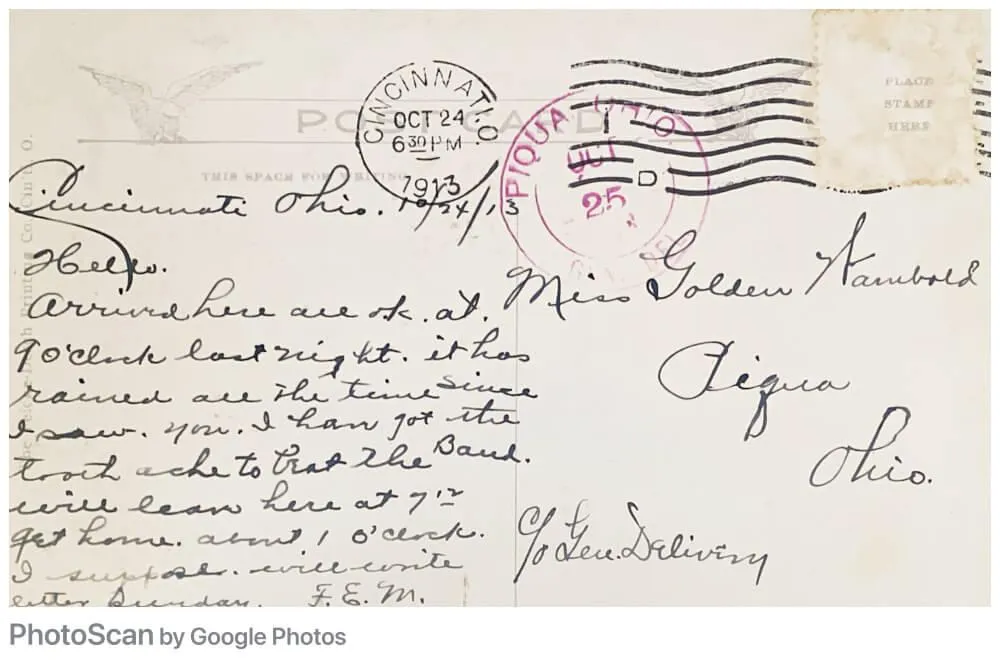 CINCINNATI, O.
OCT 24
6 30 PM
1913
PIQUA OHIO
OCT
25
1
D
POST CARD
PLACE
STAMP
HERE
THIS SPACE FOR WRITING
Cincinnati Ohio. 10/24/13
Hello.
Arrived here all ok. at.
9 o'clock last night. it has
rained all the time since
I saw. you. I have got the
tooth ache to beat the Band.
will leave here at 7 12
get home. about 1 o'clock.
I suppose. will write
letter Sunday. F.E.M.
Miss Golden Wambold
Piqua
Ohio.
c/o Gen. Delivery
Printing Co. Cin'ti O.
PhotoScan by Google Photos